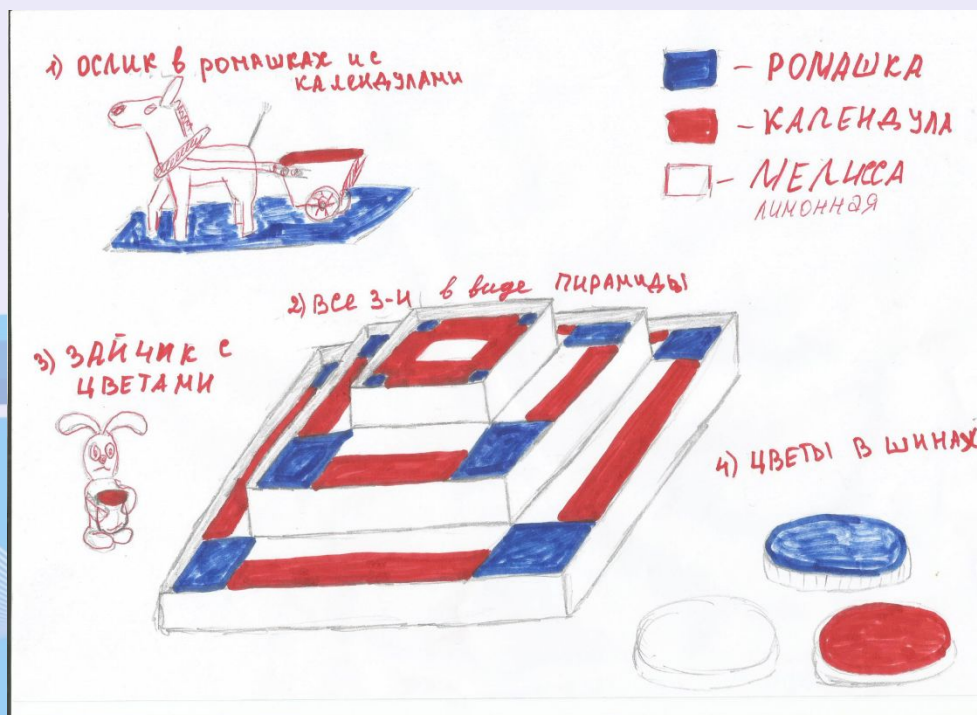 1) ОСЛИК В РОМАШКАХ И С
КАЛЕНДУЛАМИ
- РОМАШКА
- КАЛЕНДУЛА
- МЕЛИССА
ЛИМОННАЯ
2) ВСЕ 3-И в виде ПИРАМИДЫ
3) ЗАЙЧИК С
ЦВЕТАМИ
4) ЦВЕТЫ В ШИНАХ